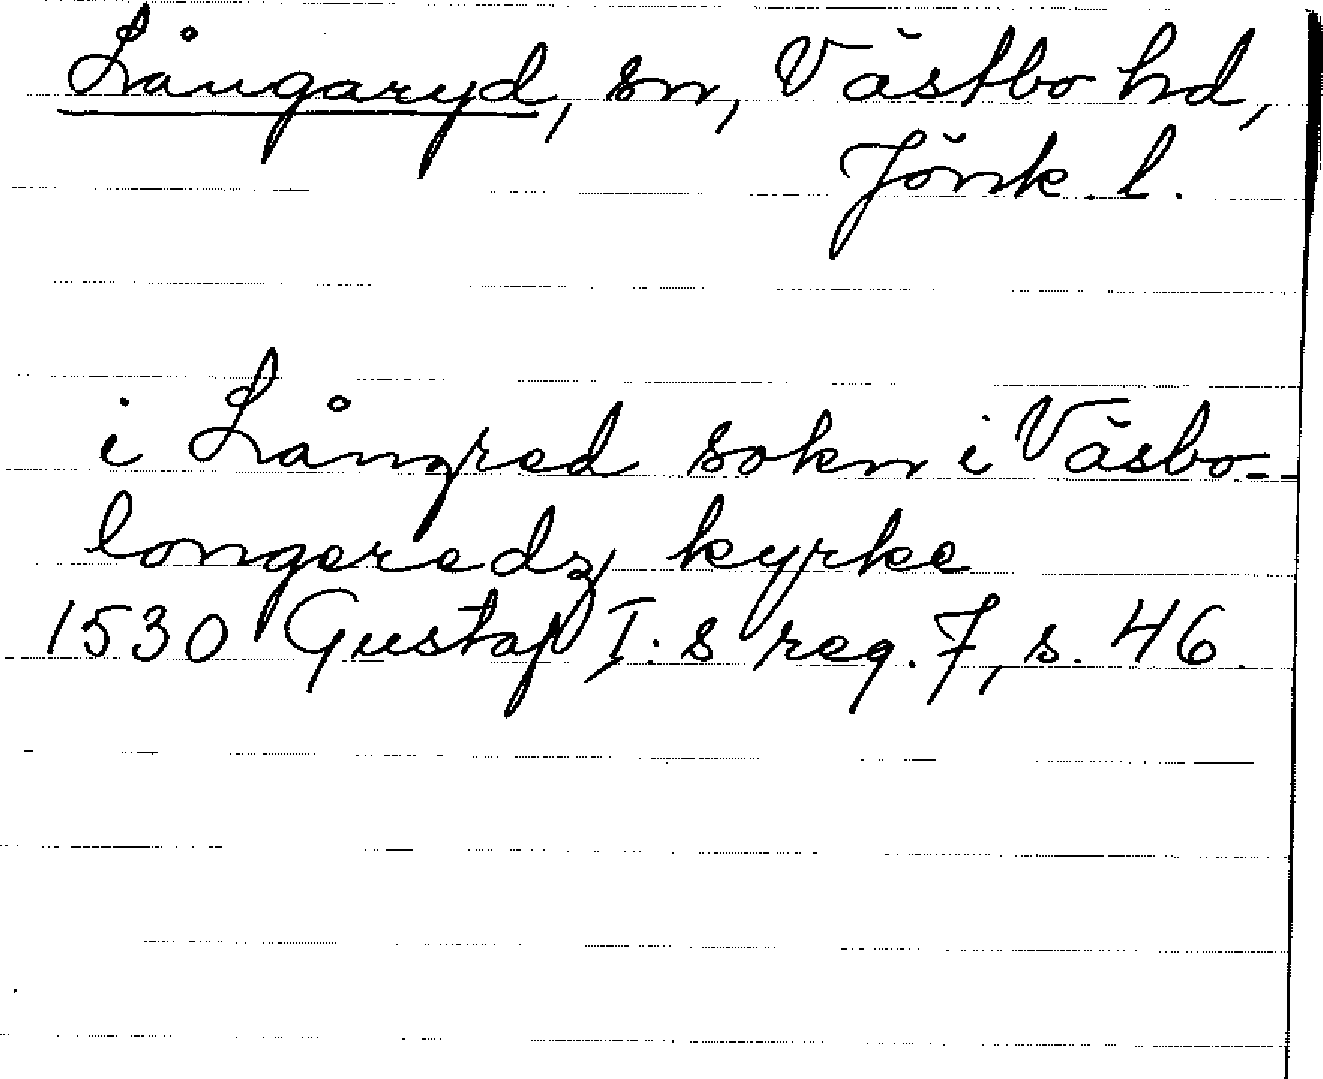 Långaryd, sn, Västbo hd,
Jönk. l.
i Långred sokn i Väsbo--
longeredz kyrke
1530 Gustaf I:s reg. 7, s. 46.